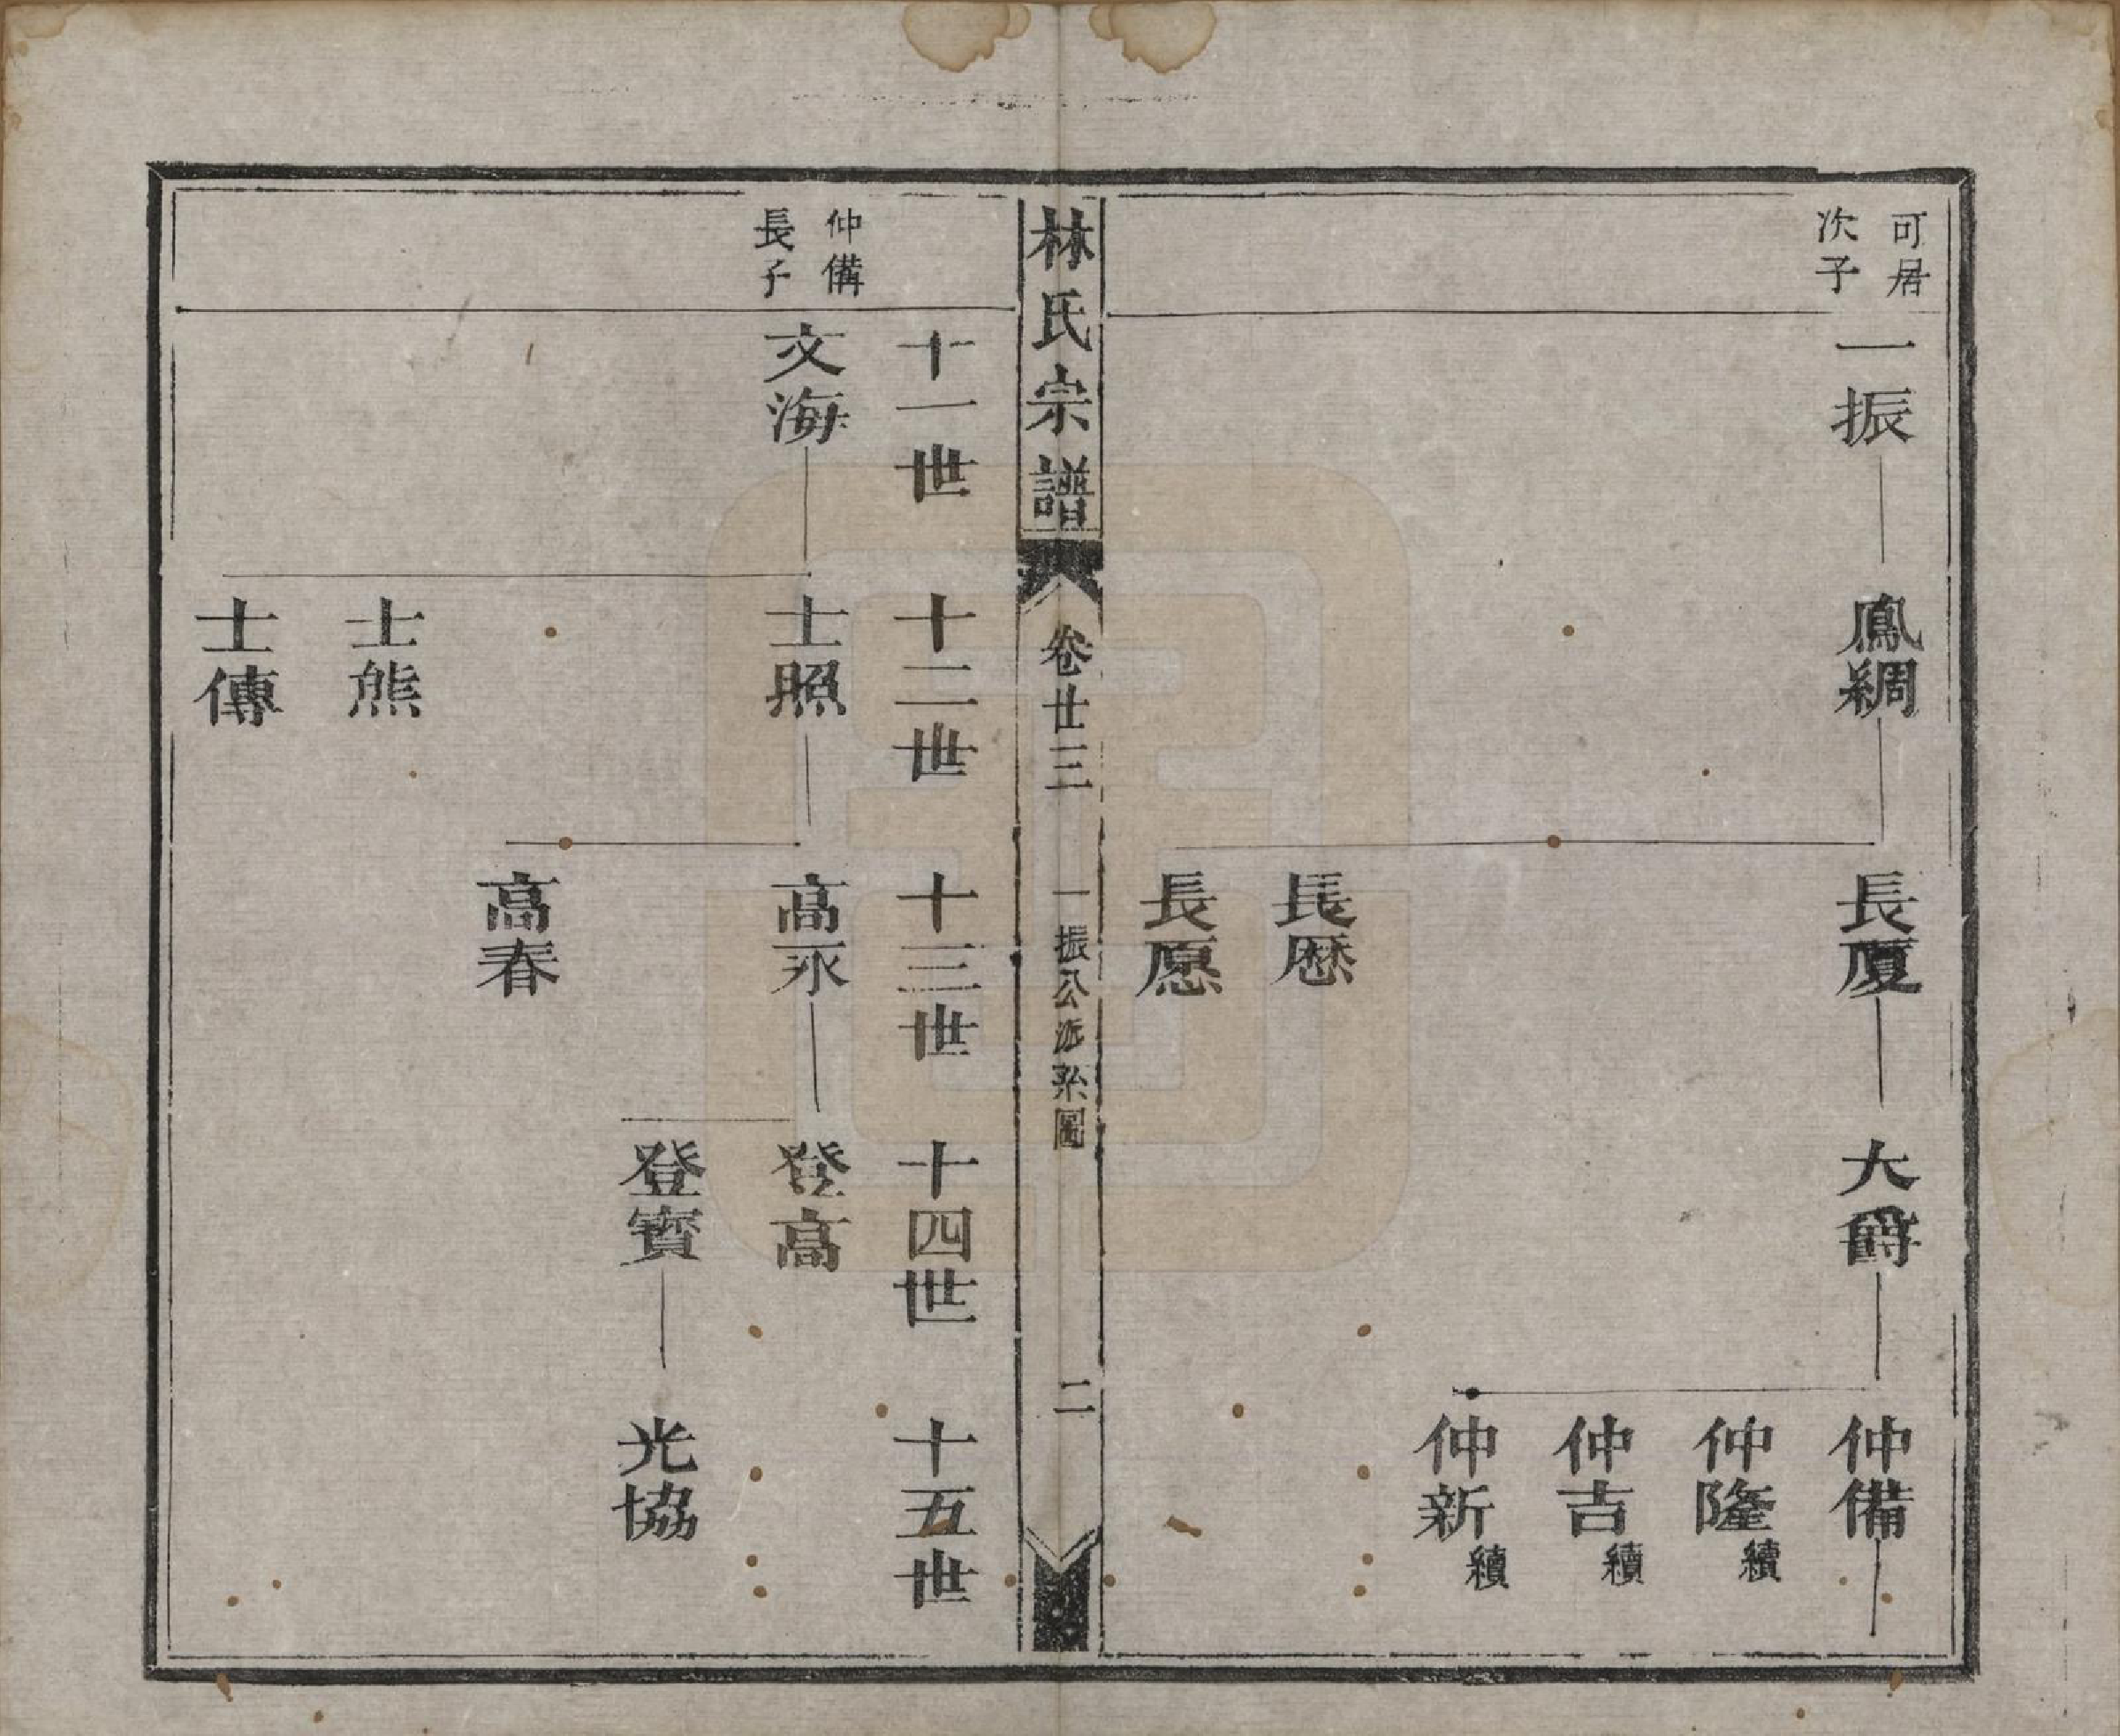 可居
次子
一振
鳳綢
長厦
大爵
仲備
仲隆 續
仲吉 續
仲新 續
長歷
長愿
林氏宗譜
卷廿三
一振公派系圖
二
十一世
十二世
十三世
十四世
十五世
仲備
長子
文海
士照
高永
登高
登寳
光協
高春
士熊
士傳